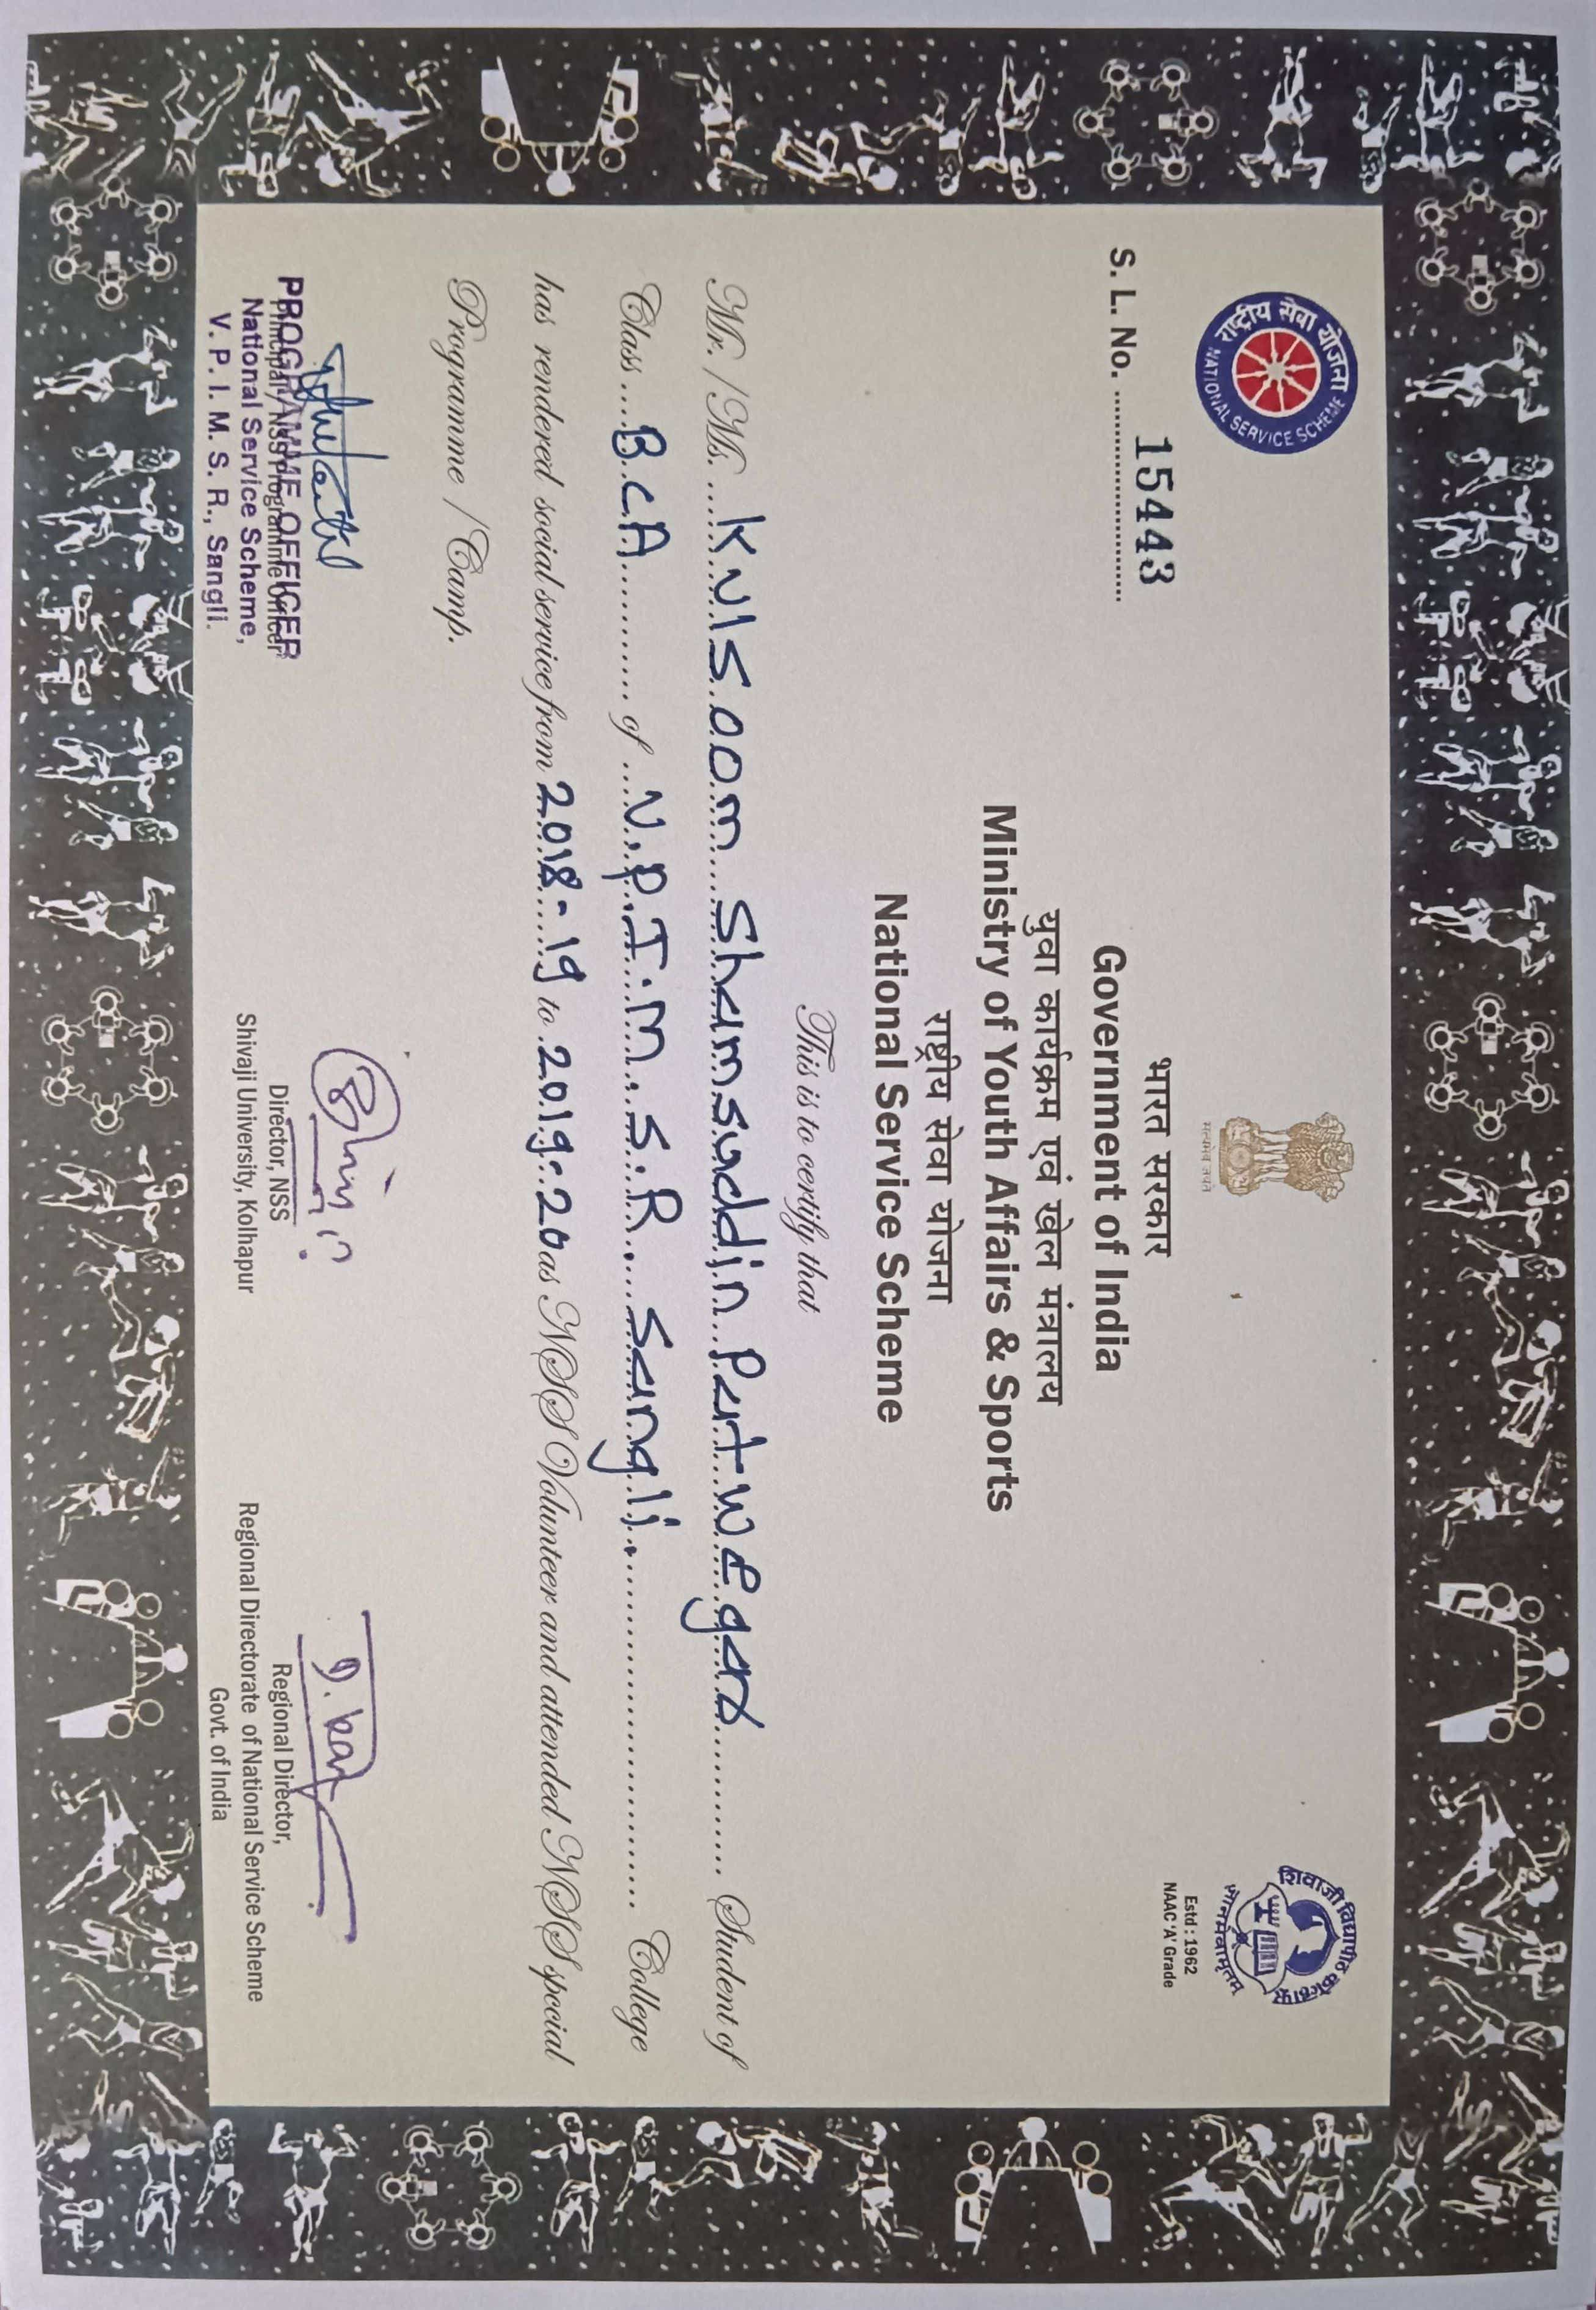 राष्ट्रीय सेवा योजना
NATIONAL SERVICE SCHEME
S. L. No. 15443
सत्यमेव जयते
शिवाजी विद्यापीठ कोल्हापूर
ज्ञानमेवामृतम
Estd : 1962
NAAC 'A' Grade
भारत सरकार
Government of India
युवा कार्यक्रम एवं खेल मंत्रालय
Ministry of Youth Affairs & Sports
राष्ट्रीय सेवा योजना
National Service Scheme
This is to certify that
Mr. / Ms. Kulsoom Shamsuddin Partwegar Student of
Class B.C.A of V.P.I.M.S.R. Sangli. College
has rendered social service from 2018-19 to 2019-20 as NSS Volunteer and attended NSS special
Programme / Camp.
PROGRAMME OFFICER
Principal / NSS Programme Officer
National Service Scheme,
V. P. I. M. S. R., Sangli.
Director, NSS
Shivaji University, Kolhapur
Regional Director,
Regional Directorate of National Service Scheme
Govt. of India